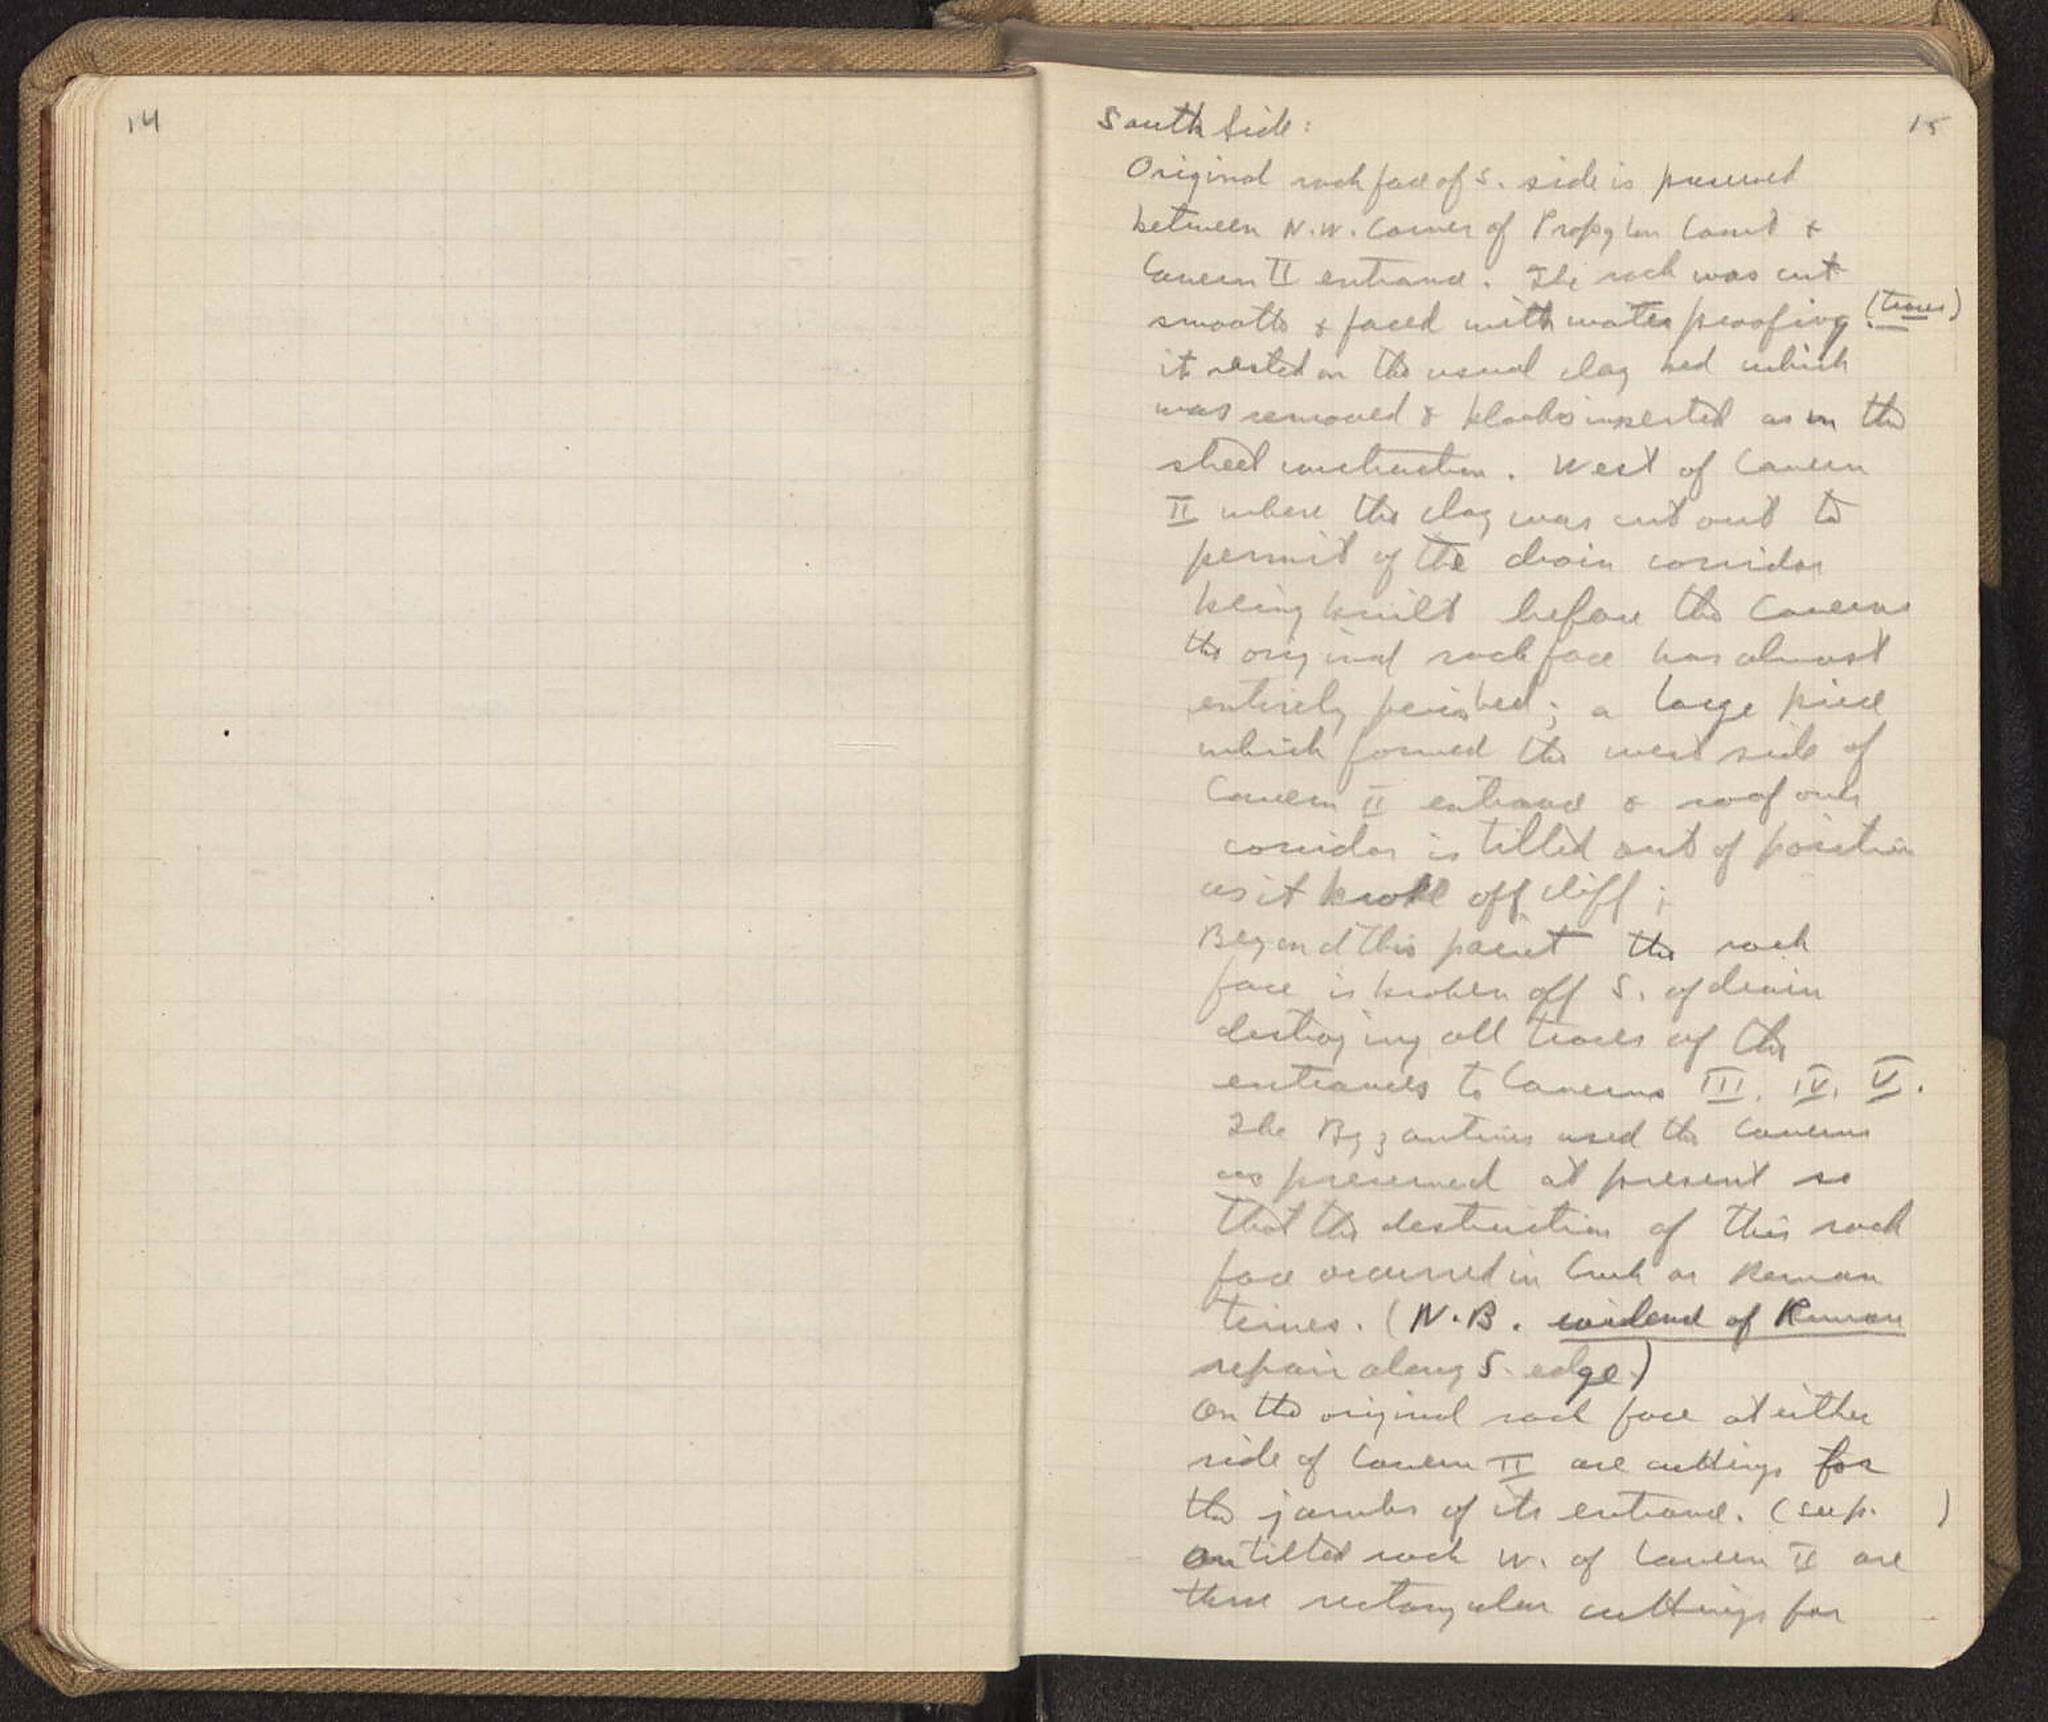 14
15
South Side:
Original rock face of S. side is preserved
between N.W. Corner of Propylon Court &
Cavern II entrance. The rock was cut
smooth & faced with waterproofing (traces)
it rested on the usual clay bed which
was removed & blocks inserted as in the
street construction. West of Cavern
II where the clay was cut out to
permit of the drain corridor
being built before the Caverns
the original rock face has almost
entirely perished; a large piece
which formed the west side of
Cavern II entrance & roof over
corridor is tilted out of position
as it broke off cliff;
Beyond this point the rock
face is broken off S. of drain
destroying all traces of the
entrances to Caverns III. IV. V.
The Byzantines used the Caverns
as preserved at present so
that the destruction of this rock
face occurred in Greek or Roman
times. (N.B. evidence of Roman
repair along S. edge.)
On the original rock face at either
side of Cavern II are cuttings for
the jambs of its entrance. (sup. )
On tilted rock W. of Cavern II are
three rectangular cuttings for